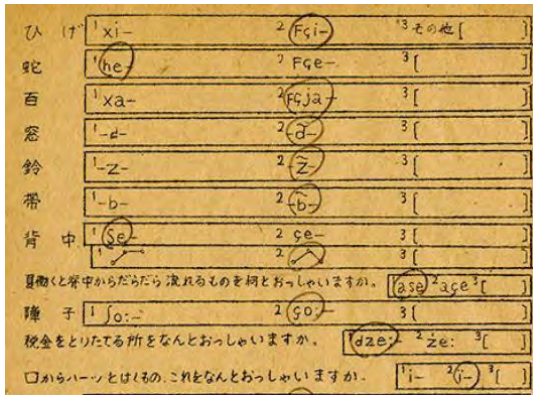 ひげ 1 xi- 2 Fçi- 3 その他 [ ]
蛇 1 he 2 Fçe- 3 [ ]
百 1 xa- 2 Fçja- 3 [ ]
窓 1 -d- 2 -d̃- 3 [ ]
鈴 1 -z- 2 -z̃- 3 [ ]
帯 1 -b- 2 -b̃- 3 [ ]
背中 1 se- 2 çe- 3 [ ]
1 2 3 [ ]
夏働くと背中からだらだら流れるものを何とおっしゃいますか。 1 ase 2 açe 3 [ ]
障子 1 ʃo:- 2 ço:- 3 [ ]
税金をとりたてる所をなんとおっしゃいますか。 1 dze:- 2 ze: 3 [ ]
口からハーッとはくもの、これをなんとおっしゃいますか. 1 i- 2 i- 3 [ ]